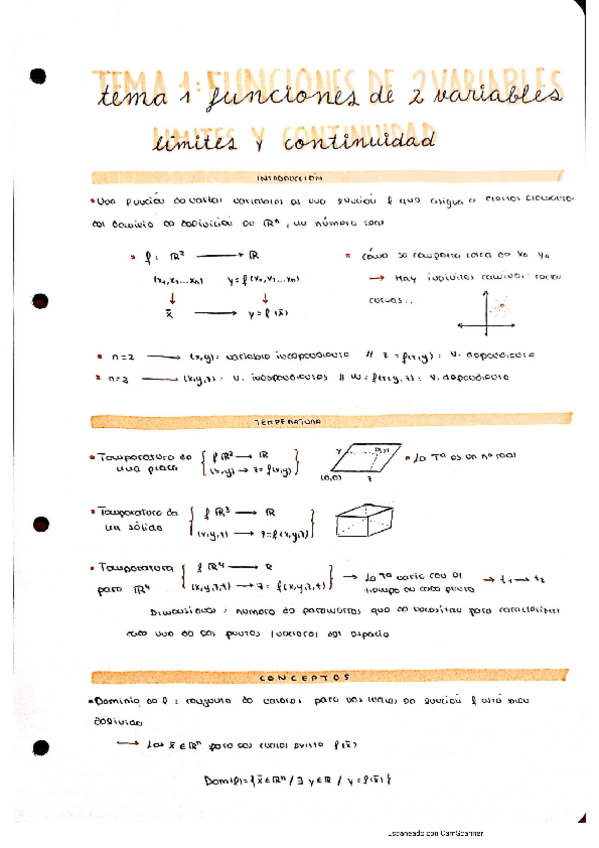 TEMA 1: FUNCIONES DE 2 VARIABLES
tema 1 funciones de 2 variables
LIMITES Y CONTINUIDAD
limites y continuidad
INTRODUCCIÓN
• Una función de varias variables es una función f que asigna a ciertos elementos
del dominio de definición en ℝⁿ, un número real
• f: ℝ² → ℝ
(x₁,x₂...xₙ) y=f(x₁,x₂...xₙ)
x̄ → y=f(x̄)
• cómo se comporta cerca de x₀ y₀
→ Hay infinitos caminos: rectas
curvas...
• n=2 → (x,y): variable independiente // z=f(x,y): v. dependiente
• n=3 → (x,y,z): v. independientes // w=f(x,y,z): v. dependiente
TEMPERATURA
• Temperatura de una placa { f ℝ² → ℝ
(x,y) → z=f(x,y) }
y
(0,0)
• La Tª es un nº real
• Temperatura de un sólido { f ℝ³ → ℝ
(x,y,z) → z=f(x,y,z) }
• Temperatura para ℝ⁴ { f ℝ⁴ → ℝ
(x,y,z,t) → z=f(x,y,z,t) }
→ La Tª varía con el tiempo en cada punto → t₁ → t₂
Dimensiones: número de parámetros que se necesitan para caracterizar
cada uno de los puntos (vectores) del espacio
CONCEPTOS
• Dominio de f: conjunto de valores para los cuales la función f está bien
definida
→ Los x̄ ∈ ℝⁿ para los cuales existe f(x̄)
Dom(f)={x̄ ∈ ℝⁿ / ∃ y ∈ ℝ / y=f(x̄)}
Escaneado con CamScanner